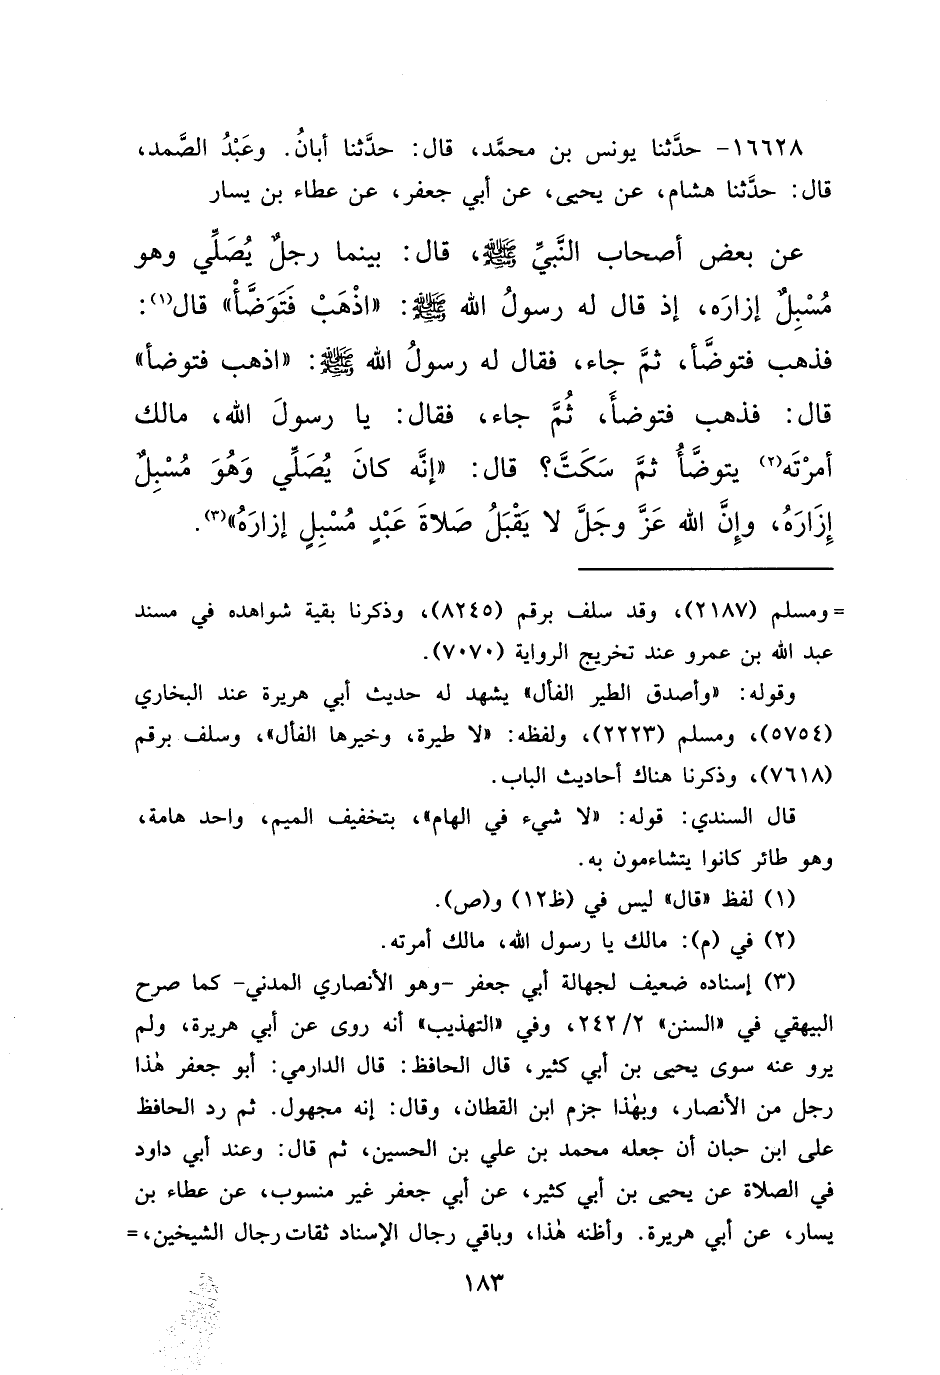 ١٦٦٢٨- حدَّثنا يونس بن محمَّد، قال: حدَّثنا أبانُ. وعَبْدُ الصَّمد،
قال: حدَّثنا هشام، عن يحيى، عن أبي جعفر، عن عطاء بن يسار
عن بعض أصحاب النَّبيِّ ﷺ، قال: بينما رجلٌ يُصَلِّي وهو
مُسْبِلٌ إزارَه، إذ قال له رسولُ الله ﷺ: «اذْهَبْ فَتَوَضَّأْ» قال(١):
فذهب فتوضَّأ، ثمَّ جاء، فقال له رسولُ الله ﷺ: «اذهب فتوضأ»
قال: فذهب فتوضأَ، ثُمَّ جاء، فقال: يا رسولَ الله، مالك
أمرْتَه(٢) يتوضَّأُ ثمَّ سَكَتَّ؟ قال: «إنَّه كانَ يُصَلِّي وَهُوَ مُسْبِلٌ
إِزَارَهُ، وإِنَّ الله عَزَّ وجَلَّ لا يَقْبَلُ صَلاةَ عَبْدٍ مُسْبِلٍ إزارَهُ»(٣).
= ومسلم (٢١٨٧)، وقد سلف برقم (٨٢٤٥)، وذكرنا بقية شواهده في مسند
عبد الله بن عمرو عند تخريج الرواية (٧٠٧٠).
وقوله: «وأصدق الطير الفأل» يشهد له حديث أبي هريرة عند البخاري
(٥٧٥٤)، ومسلم (٢٢٢٣)، ولفظه: «لا طيرة، وخيرها الفأل»، وسلف برقم
(٧٦١٨)، وذكرنا هناك أحاديث الباب.
قال السندي: قوله: «لا شيء في الهام»، بتخفيف الميم، واحد هامة،
وهو طائر كانوا يتشاءمون به.
(١) لفظ «قال» ليس في (ظ١٢) و(ص).
(٢) في (م): مالك يا رسول الله، مالك أمرته.
(٣) إسناده ضعيف لجهالة أبي جعفر -وهو الأنصاري المدني- كما صرح
البيهقي في «السنن» ٢٤٢/٢، وفي «التهذيب» أنه روى عن أبي هريرة، ولم
يرو عنه سوى يحيى بن أبي كثير، قال الحافظ: قال الدارمي: أبو جعفر هٰذا
رجل من الأنصار، وبهٰذا جزم ابن القطان، وقال: إنه مجهول. ثم رد الحافظ
على ابن حبان أن جعله محمد بن علي بن الحسين، ثم قال: وعند أبي داود
في الصلاة عن يحيى بن أبي كثير، عن أبي جعفر غير منسوب، عن عطاء بن
يسار، عن أبي هريرة. وأظنه هٰذا، وباقي رجال الإسناد ثقات رجال الشيخين، =
١٨٣